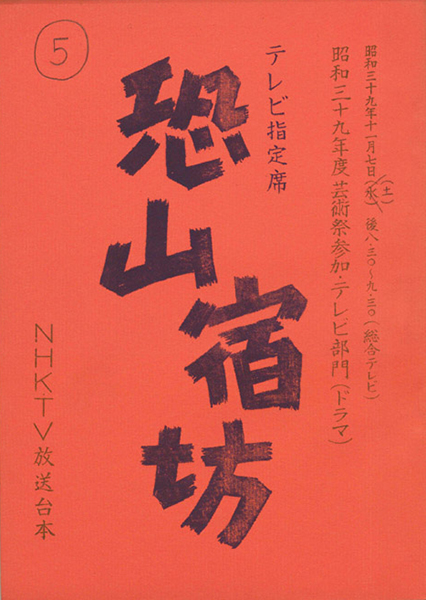 昭和三十九年十一月七日(水)(土) 後八・三〇~九・三〇(総合テレビ)
昭和三十九年度芸術祭参加・テレビ部門(ドラマ)
テレビ指定席
恐山宿坊
5
NHKTV放送台本